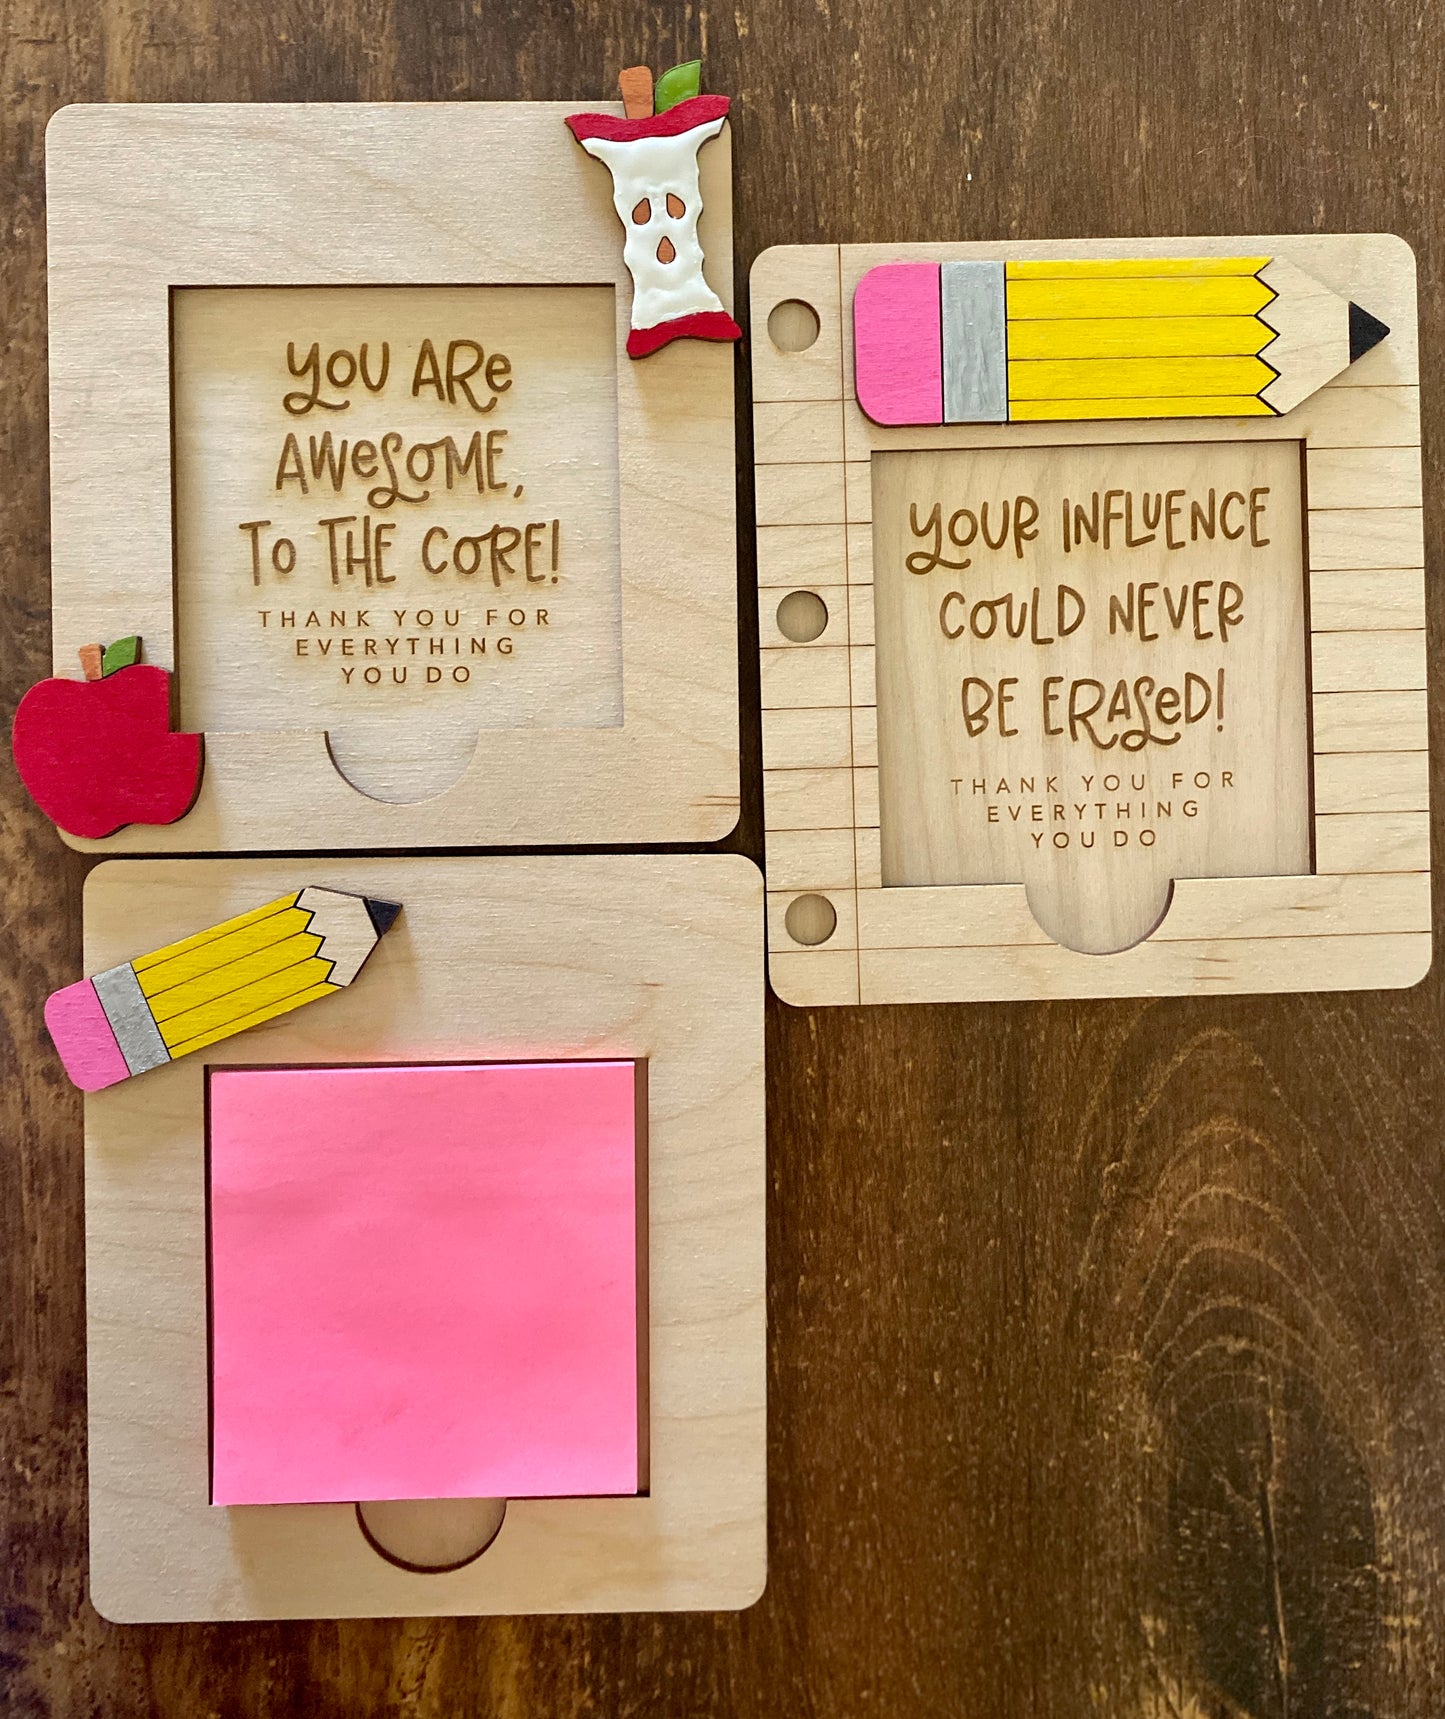 YOU ARE
AWESOME,
TO THE CORE!
THANK YOU FOR
EVERYTHING
YOU DO
YOUR INFLUENCE
COULD NEVER
BE ERASED!
THANK YOU FOR
EVERYTHING
YOU DO